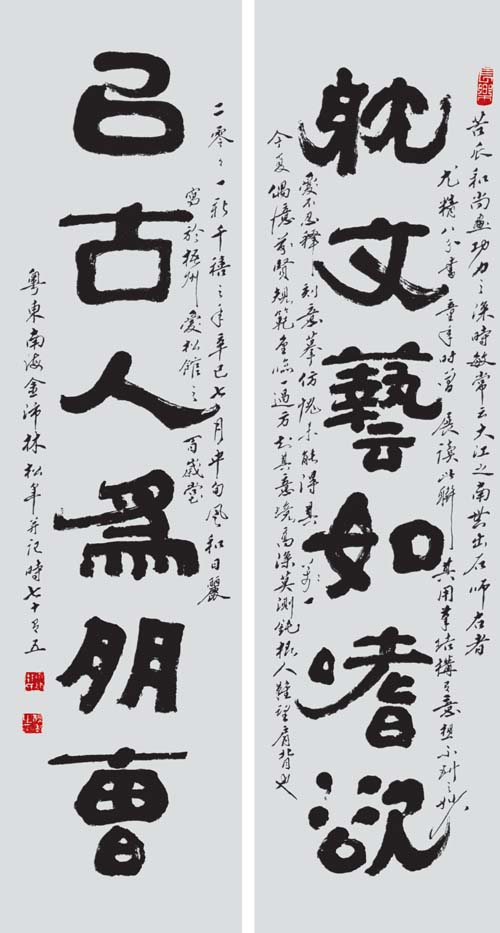 躭文藝如嗜欲
苦瓜和尚畫功力之深時敏常云大江之南無出石師右者
尤精八分書童年時曾展讀此聯其用筆結構有意想不到之妙
愛不忍釋刻意摹仿愧未能得其萬一
今夏偶憶前賢規範重臨一過方知其意境高深莫測鈍根人難望肩背也
㠯古人為朋曹
二零〻一新千禧之年辛巳七月中旬風和日麗
寫於梧州愛松館之百歲堂
粵東南海金沛林松年并記時七十有五